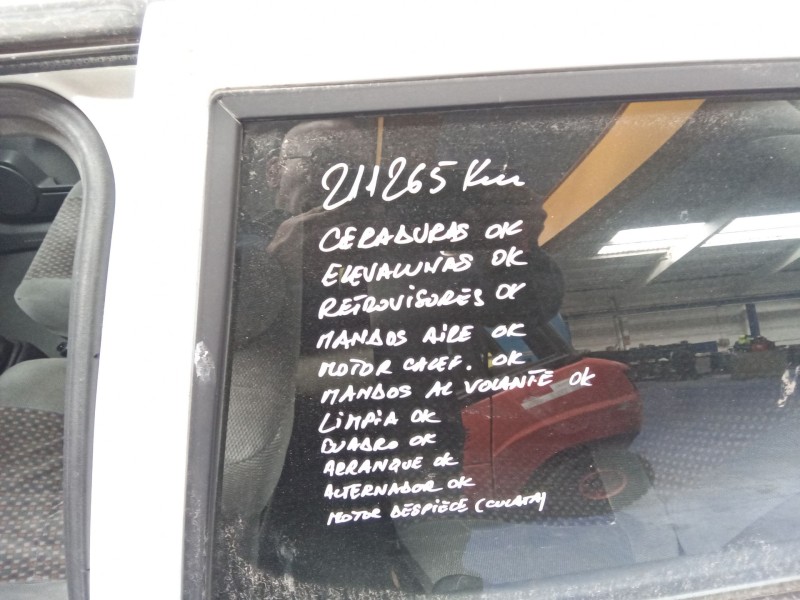 211265 Km
CERADURAS OK
ELEVALUNAS OK
RETROVISORES OK
MANDOS AIRE OK
MOTOR CALEF. OK
MANDOS AL VOLANTE OK
LIMPIA OK
CUADRO OK
ARRANQUE OK
ALTERNADOR OK
MOTOR DESPIECE (CULATA)